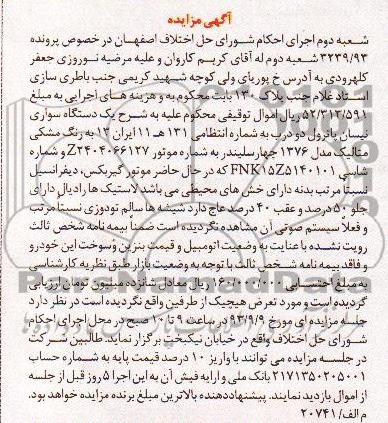 آگهی مزایده
شعبه دوم اجرای احکام شورای حل اختلاف اصفهان در خصوص پرونده
۳۲۳۹/۹۳ شعبه دوم له آقای کریم کاروان و علیه مرضیه نوروزی جعفر
کلهرودی به آدرس خ پوریای ولی کوچه شهید کریمی جنب باطری سازی
استاد غلام جنب پلاک ۱۳۰ بابت محکوم به و هزینه های اجرایی به مبلغ
۵۲/۳۱۲/۵۹۱ ریال اموال توقیفی محکوم علیه به شرح یک دستگاه سواری
نیسان پاترول دو درب به شماره انتظامی ۱۳۱ هـ ۱۱ ایران ۱۳ به رنگ مشکی
متالیک مدل ۱۳۷۶ چهارسلیندر به شماره موتور Z۲۴۰۴۰۶۶۱۲۷ و شماره
شاسی FNK۱۵Z۵۱۴۰۱۰۱ که در حال حاضر موتور گیربکس، دیفرانسیل
نسبتا مرتب بدنه دارای خش های محیطی می باشد لاستیک ها رادیال دارای
جلو ۵۰ درصد و عقب ۴۰ درصد عاج دارد شیشه ها سالم تودوزی نسبتاً مرتب
و فعلاً سیستم صوتی آن مشاهده نگردیده است ضمناً بیمه نامه شخص ثالث
رویت نشده با عنایت به وضعیت اتومبیل و قیمت بنزین وسوخت این خودرو
و فاقد بیمه نامه شخص ثالث با توجه به وضعیت بازار طبق نظریه کارشناسی
به مبلغ احتسابی ۱۶۰/۰۰۰/۰۰۰ ریال معادل شانزده میلیون تومان ارزیابی
گردیده است و مورد تعرض هیچیک از طرفین واقع نگردیده است در نظر دارد
جلسه مزایده ای مورخ ۹۳/۹/۹ در ساعت ۹ تا ۱۰ صبح در محل اجرای احکام
شورای حل اختلاف واقع در خیابان نیکبخت برگزار نماید. طالبین شرکت
در جلسه مزایده می توانند با واریز ۱۰ درصد قیمت پایه به شماره حساب
۲۱۷۱۳۵۰۲۰۵۰۰۱ بانک ملی و ارایه فیش آن به این اجرا ۵ روز قبل از جلسه
از اموال بازدید نمایند. پیشنهاددهنده بالاترین مبلغ برنده مزایده خواهد بود.
م الف/ ۲۰۷۴۱